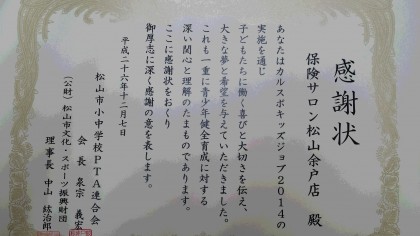 感謝状
保険サロン松山余戸店 殿
あなたはカルスポキッズジョブ2014の
実施を通じ
子どもたちに働く喜びと大切さを伝え、
大きな夢と希望を与えていただきました。
これも一重に青少年健全育成に対する
深い関心と理解のたまものであります。
ここに感謝状をおくり
御厚志に深く感謝の意を表します。
平成二十六年十二月七日
松山市小中学校PTA連合会
会長 泉宗義宏
(公財)松山市文化・スポーツ振興財団
理事長 中山紘治郎